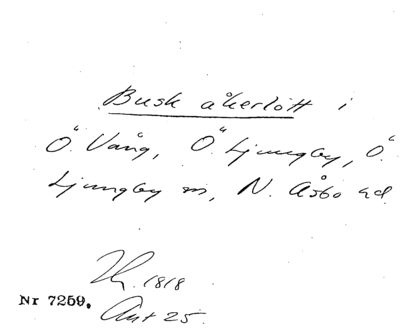 Busk åkerlött i
Ö. Vång, Ö. Ljungby, Ö.
Ljungby sn, N. Åsbo hd
1818
Nr 7259.
Ant 25.